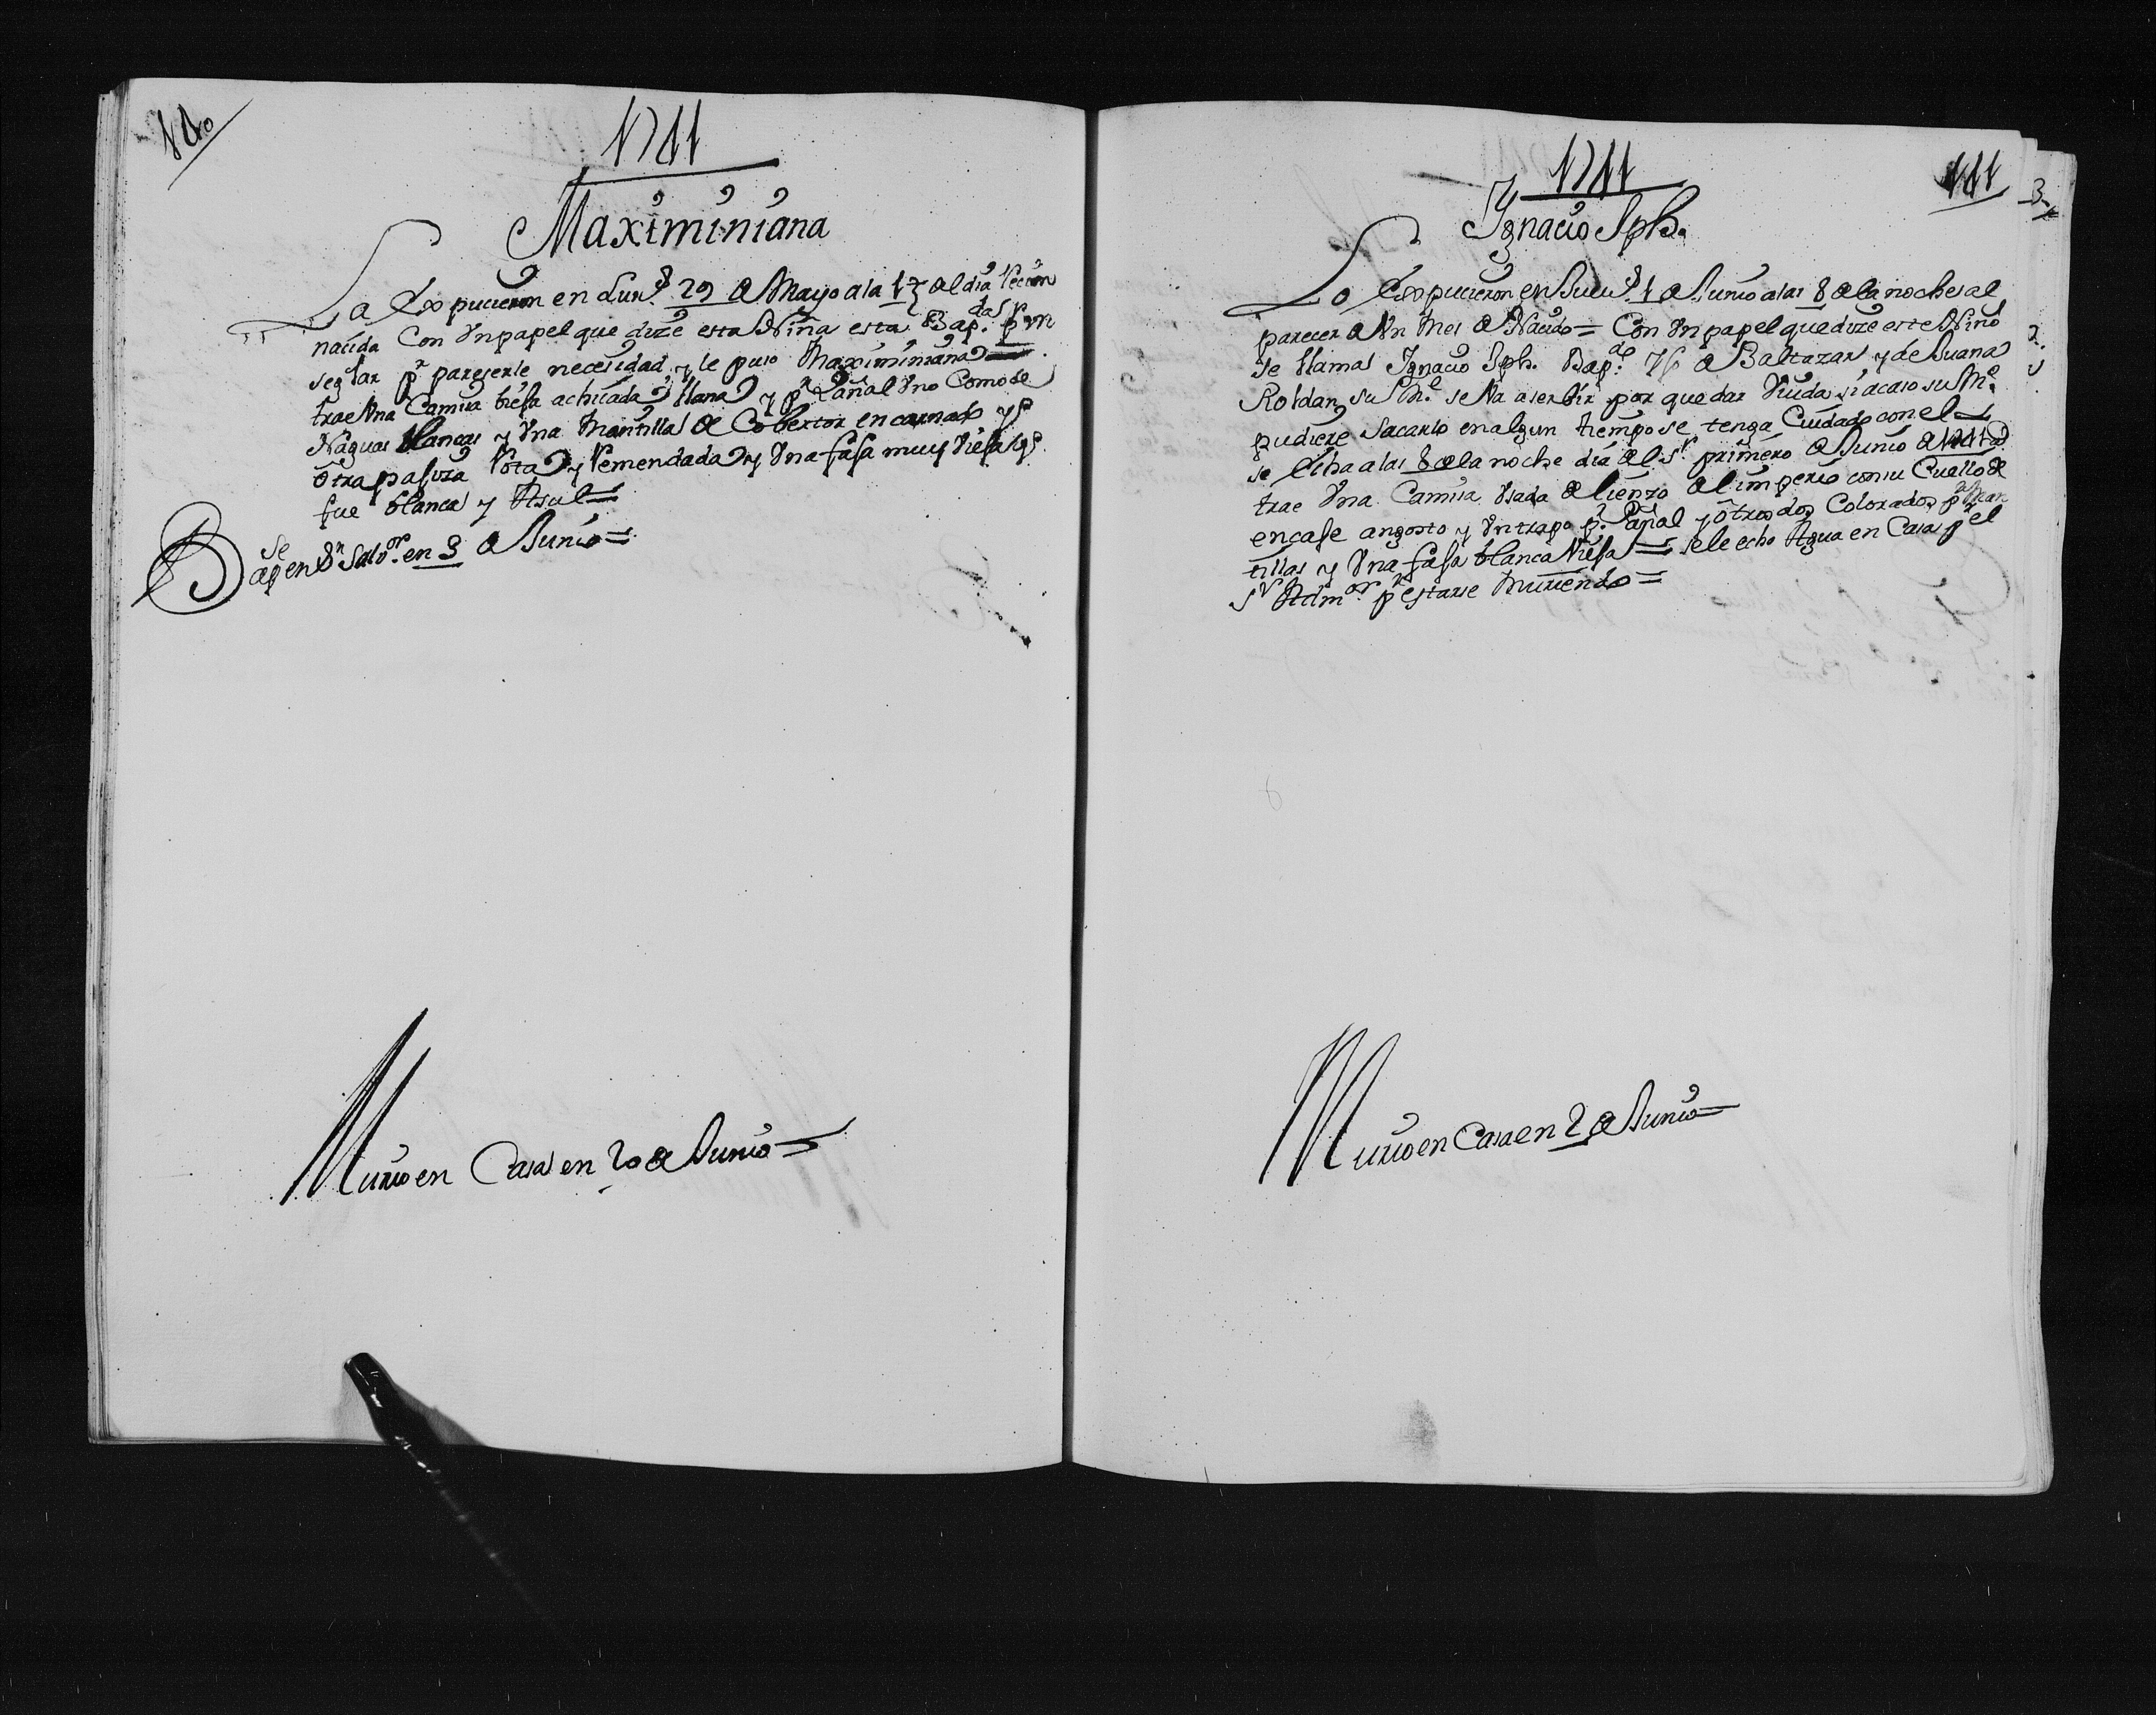 140
1741
Maximiniana
La Expucieron en Lun.s 29 de Mayo a la 1½ del dia recien
nacida Con Un papel que dize esta Niña esta Bap.da pr Vn
seglar pr pareserle necesidad y le puso Maximiniana =
trae Una Camisa biefa achicada y llana y pr Pañal Uno Como de
Naguas blancas y Una Mantilla de Cobertor encarnado y
otra pasura Rota y Remendada y Una fasa muy Viefa q.e
fue blanca y Asul =
Se
Bap en Sn Salv.or en 3 de Junio =
Murio en Casa en 20 de Junio =
1741
141
Ignacio Jph.
Lo Expucieron en Juev.s 1 de Junio a las 8 de la noche al
parecer de Vn Mes de Nacido = Con Un papel que dize este Niño
se llama Ignacio Jph. Bap.do de Baltazar y de Juana
Roldan, su M.e se Va a serbir por quedar Viuda, si acaso su M.e
pudiere sacarlo en algun tiempo se tenga Cuidado con el
se Echa a las 8 de la noche dia del Sr primero de Junio de 1741 a
trae Una Camisa Usada de lienzo del imperio con su Cuello de
encase angosto y Un trapo pr Pañal y otros dos Colorados pr Man
tillas y Una fasa blanca Viefa = se le echo Agua en Casa pr el
Sr Adm.or pr estarse Muriendo =
Murio en Casa en 2 de Junio =